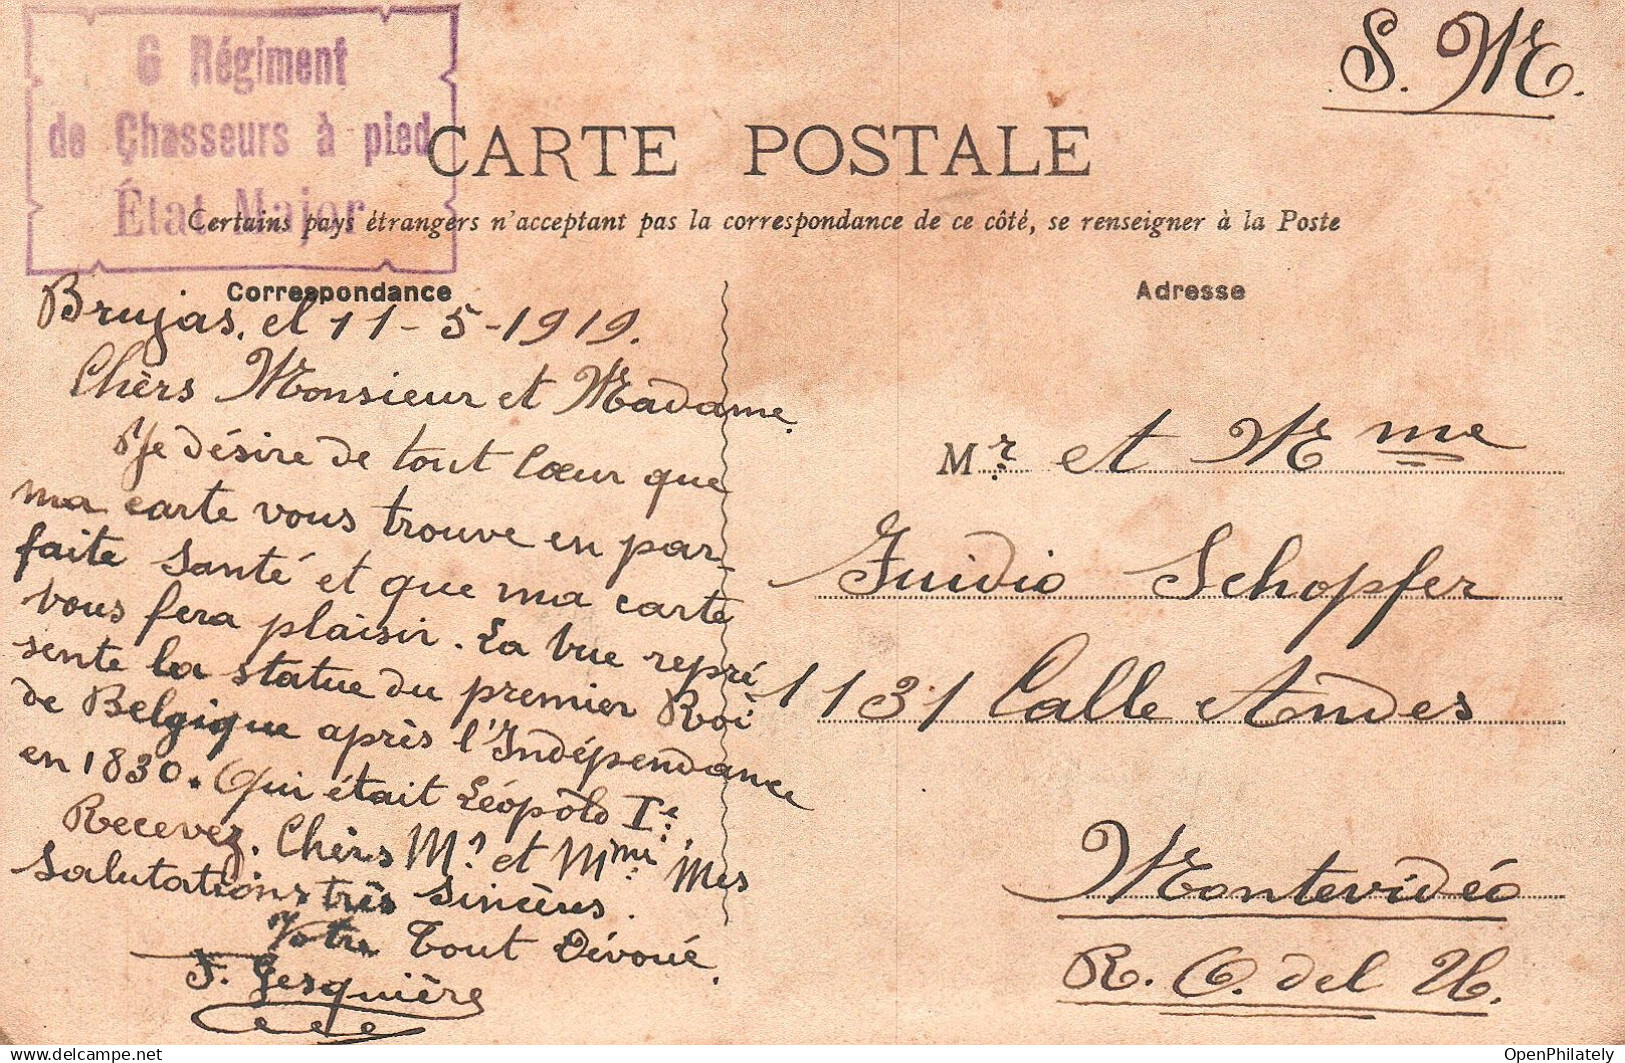 6 Régiment
de Chasseurs à pied
État Major
S. M.
CARTE POSTALE
Certains pays étrangers n'acceptent pas la correspondance de ce côté, se renseigner à la Poste
Correspondance
Brujas, el 11-5-1919.
Chèrs Monsieur et Madame.
Je désire de tout Cœur que
ma carte vous trouve en par-
faite Santé et que ma carte
vous fera plaisir. La vue repré
sente la statue du premier Roi
de Belgique après l'Indépendance
en 1830. Qui était Léopold Ier.
Recevez, Chèrs Mr et Mme Mes
Salutations très Sincères.
Votre Tout Dévoué.
F. Gesquière
Adresse
Mr. et Mme
Juidio Schopfer
1131 Calle Andes
Montevidéo
R. O. del U.
delcampe.net
OpenPhilately